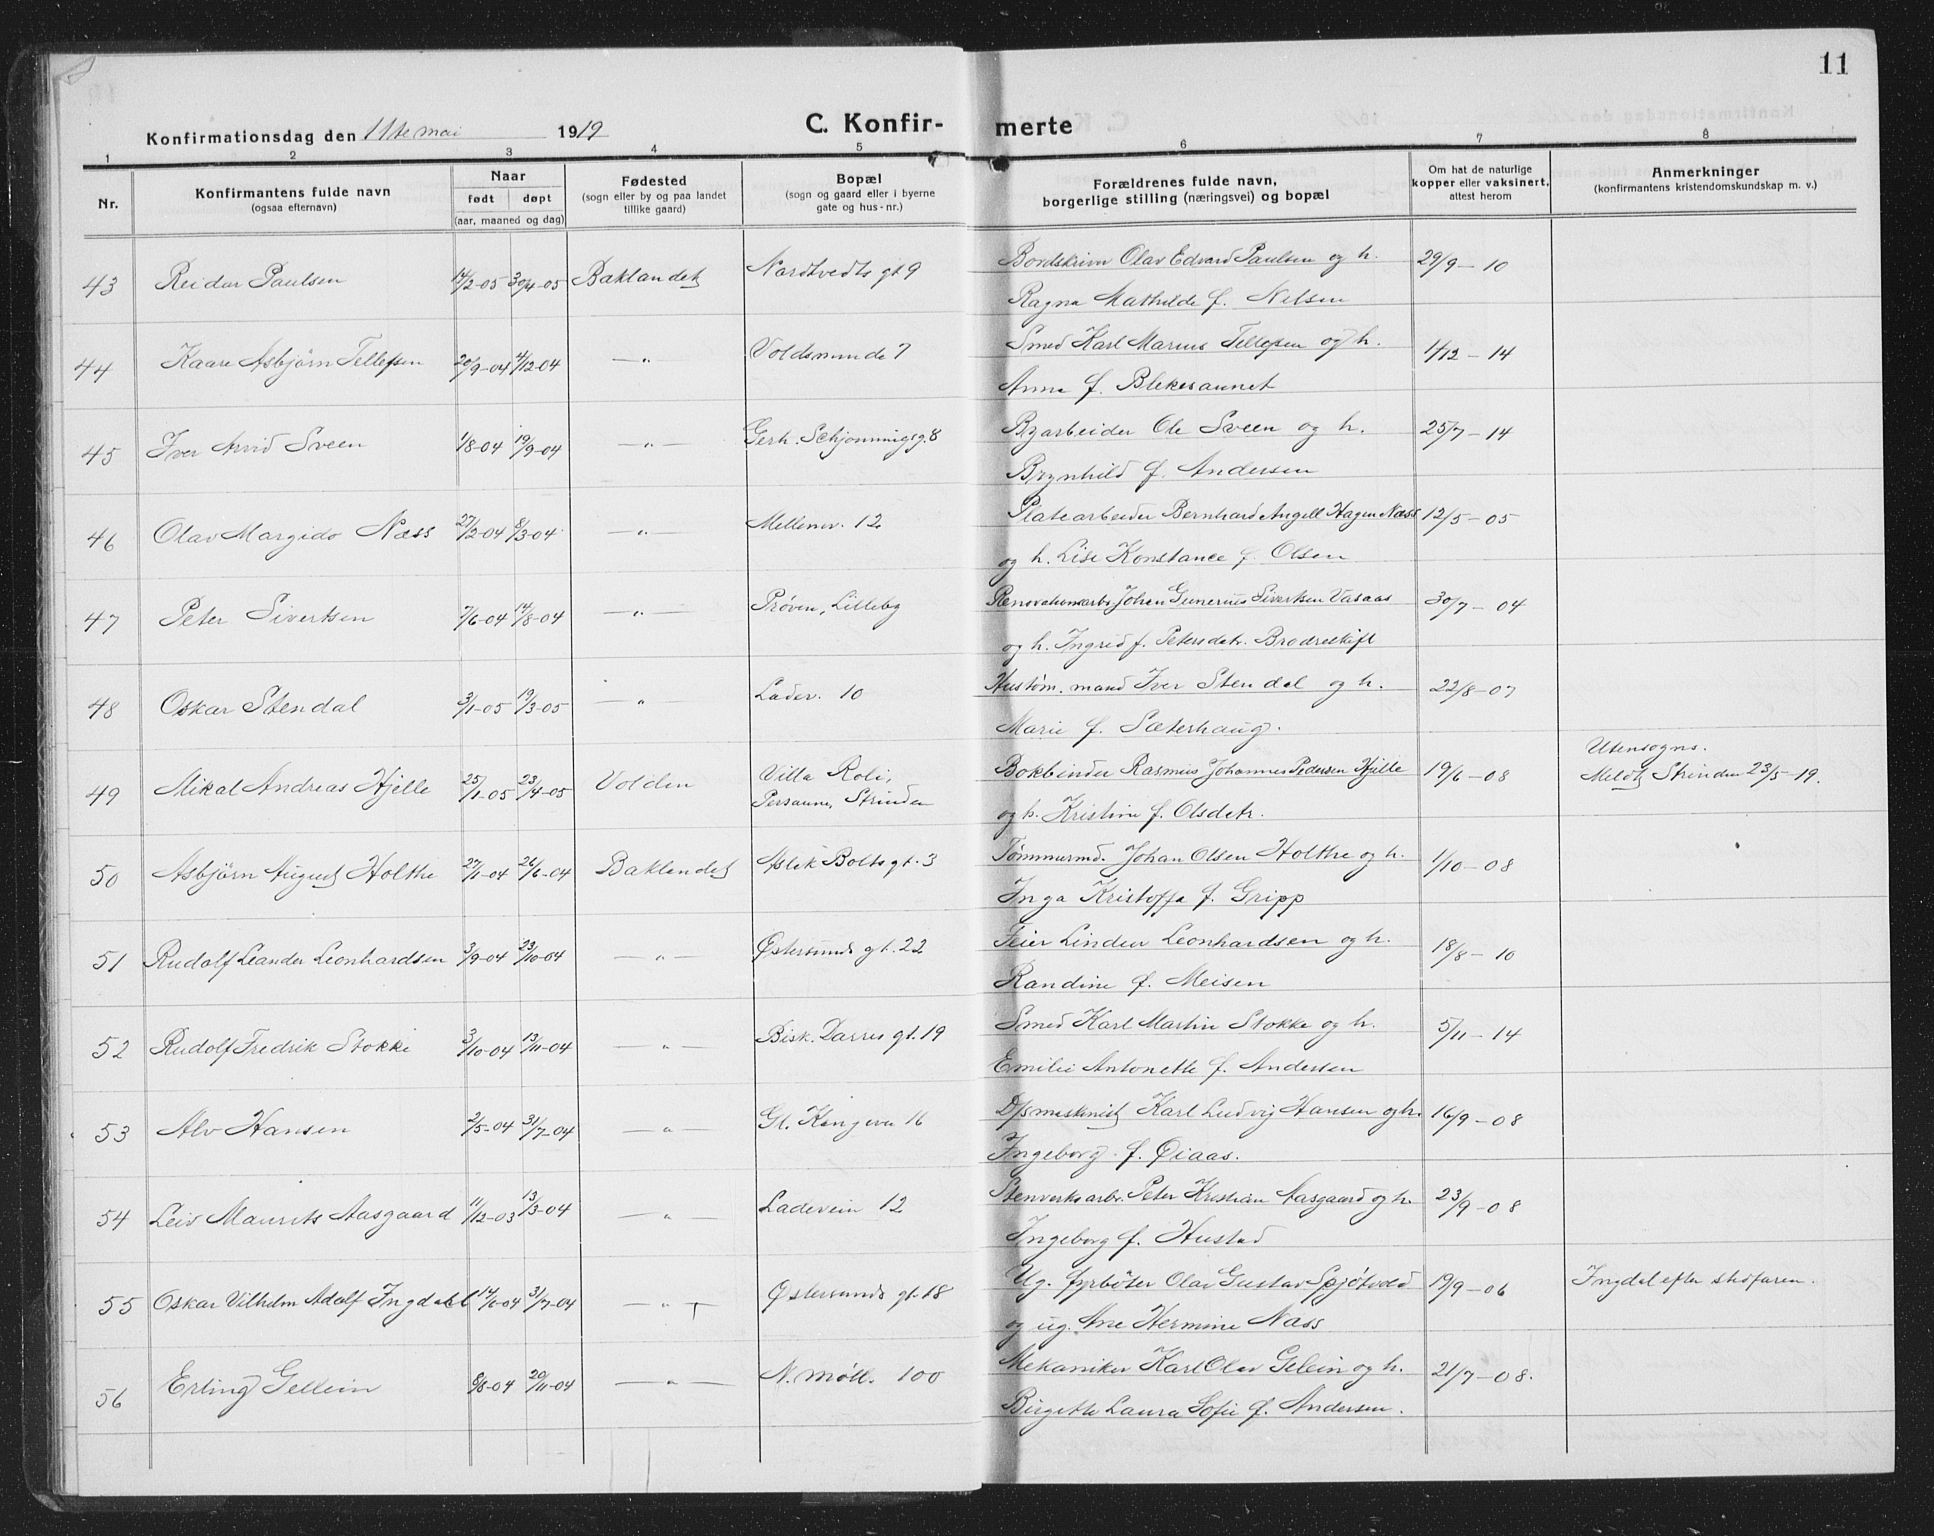 11
Konfirmationsdag den 11te mai 1919
C. Konfirmerte
1 2 3 4 5 6 7 8
Nr.
Konfirmantens fulde navn
(ogsaa efternavn)
Naar
født døpt
(aar, maaned og dag)
Fødested
(sogn eller by og paa landet
tillike gaard)
Bopæl
(sogn og gaard eller i byerne
gate og hus-nr.)
Forældrenes fulde navn,
borgerlige stilling (næringsvei) og bopæl
Om hat de naturlige
kopper eller vaksinert,
attest herom
Anmerkninger
(konfirmantens kristendomskundskap m. v.)
43 Reidar Paulsen 14/2-05 30/4-05 Baklandet Nardtvedts gt 9 Bordskriver Olav Edvard Paulsen og h. 29/9-10
Ragna Mathilde f. Nilsen
44 Kaare Asbjørn Tellefsen 20/9-04 4/12-04 —"— Voldsminde 7 Smed Karl Marius Tellefsen og h. 1/12-14
Anna f. Blekesaunet
45 Iver Arvid Sveen 1/8-04 19/9-04 —"— Gerh. Schjønningsg. 8 Byarbeider Ole Sveen og h. 25/7-14
Brynhild f. Andersen
46 Olav Margido Næss 27/2-04 8/3-04 —"— Mellemv. 12 Platearbeider Bernhard Angell Hagen Næss 12/5-05
og h. Lise Konstance f. Olsen
47 Peter Sivertsen 7/6-04 14/8-04 —"— Prøven, Lilleby Renovationsarb. Johan Gunerius Sivertsen Vasaas 30/7-04
og h. Ingrid f. Petersdtr. Brodreskift
48 Oskar Stendal 3/1-05 19/3-05 —"— Ladev. 10 Hustøm. mand Iver Stendal og h. 22/8-07
Marie f. Sæterhaug.
49 Mikal Andreas Hjelle 25/1-05 23/4-05 Volden Villa Roli, Bokbinder Rasmus Johannes Pedersen Hjelle 19/6-08 Utensogns.
Persaune, Strinden og h. Kristine f. Olsdetr. Meldt Strinden 23/5-19.
50 Asbjørn August Holthe 27/1-04 26/6-04 Baklandet Aslak Bolts gt. 3 Tømmermd. Johan Olsen Holthe og h. 1/10-08
Inga Kristoffa f. Gripp
51 Rudolf Leander Leonhardsen 3/9-04 23/10-04 —"— Østersunds gt. 22 Feier Linder Leonhardsen og h. 18/8-10
Randine f. Meisen
52 Rudolf Fredrik Stokke 3/10-04 13/11-04 —"— Bisk. Darres gt. 19 Smed Karl Martin Stokke og h. 5/11-14
Emilie Antonette f. Andersen
53 Alv Hansen 2/5-04 31/7-04 —"— Gl. Kongevei 16 D/s maskinist Karl Ludvig Hansen og h. 16/9-08
Ingeborg f. Øiaas.
54 Leiv Maurits Aasgaard 11/12-03 13/3-04 —"— Ladevein 12 Stenverksarb. Peter Kristian Aasgaard og h. 23/9-08
Ingeborg f. Hustad
55 Oskar Vilhelm Adolf Ingdahl 14/6-04 31/7-04 —"— Østersunds gt. 18 Ug. fyrbøter Olav Gustav Spjøtvold 19/9-06 Ingdal efter stedfaren.
og ug. Ane Hermine Næss
56 Erling Gellein 8/8-04 20/11-04 —"— N. Møll. 100 Mekaniker Karl Olav Gelein og h. 21/7-08.
Birgitte Laura Sofie f. Andersen.